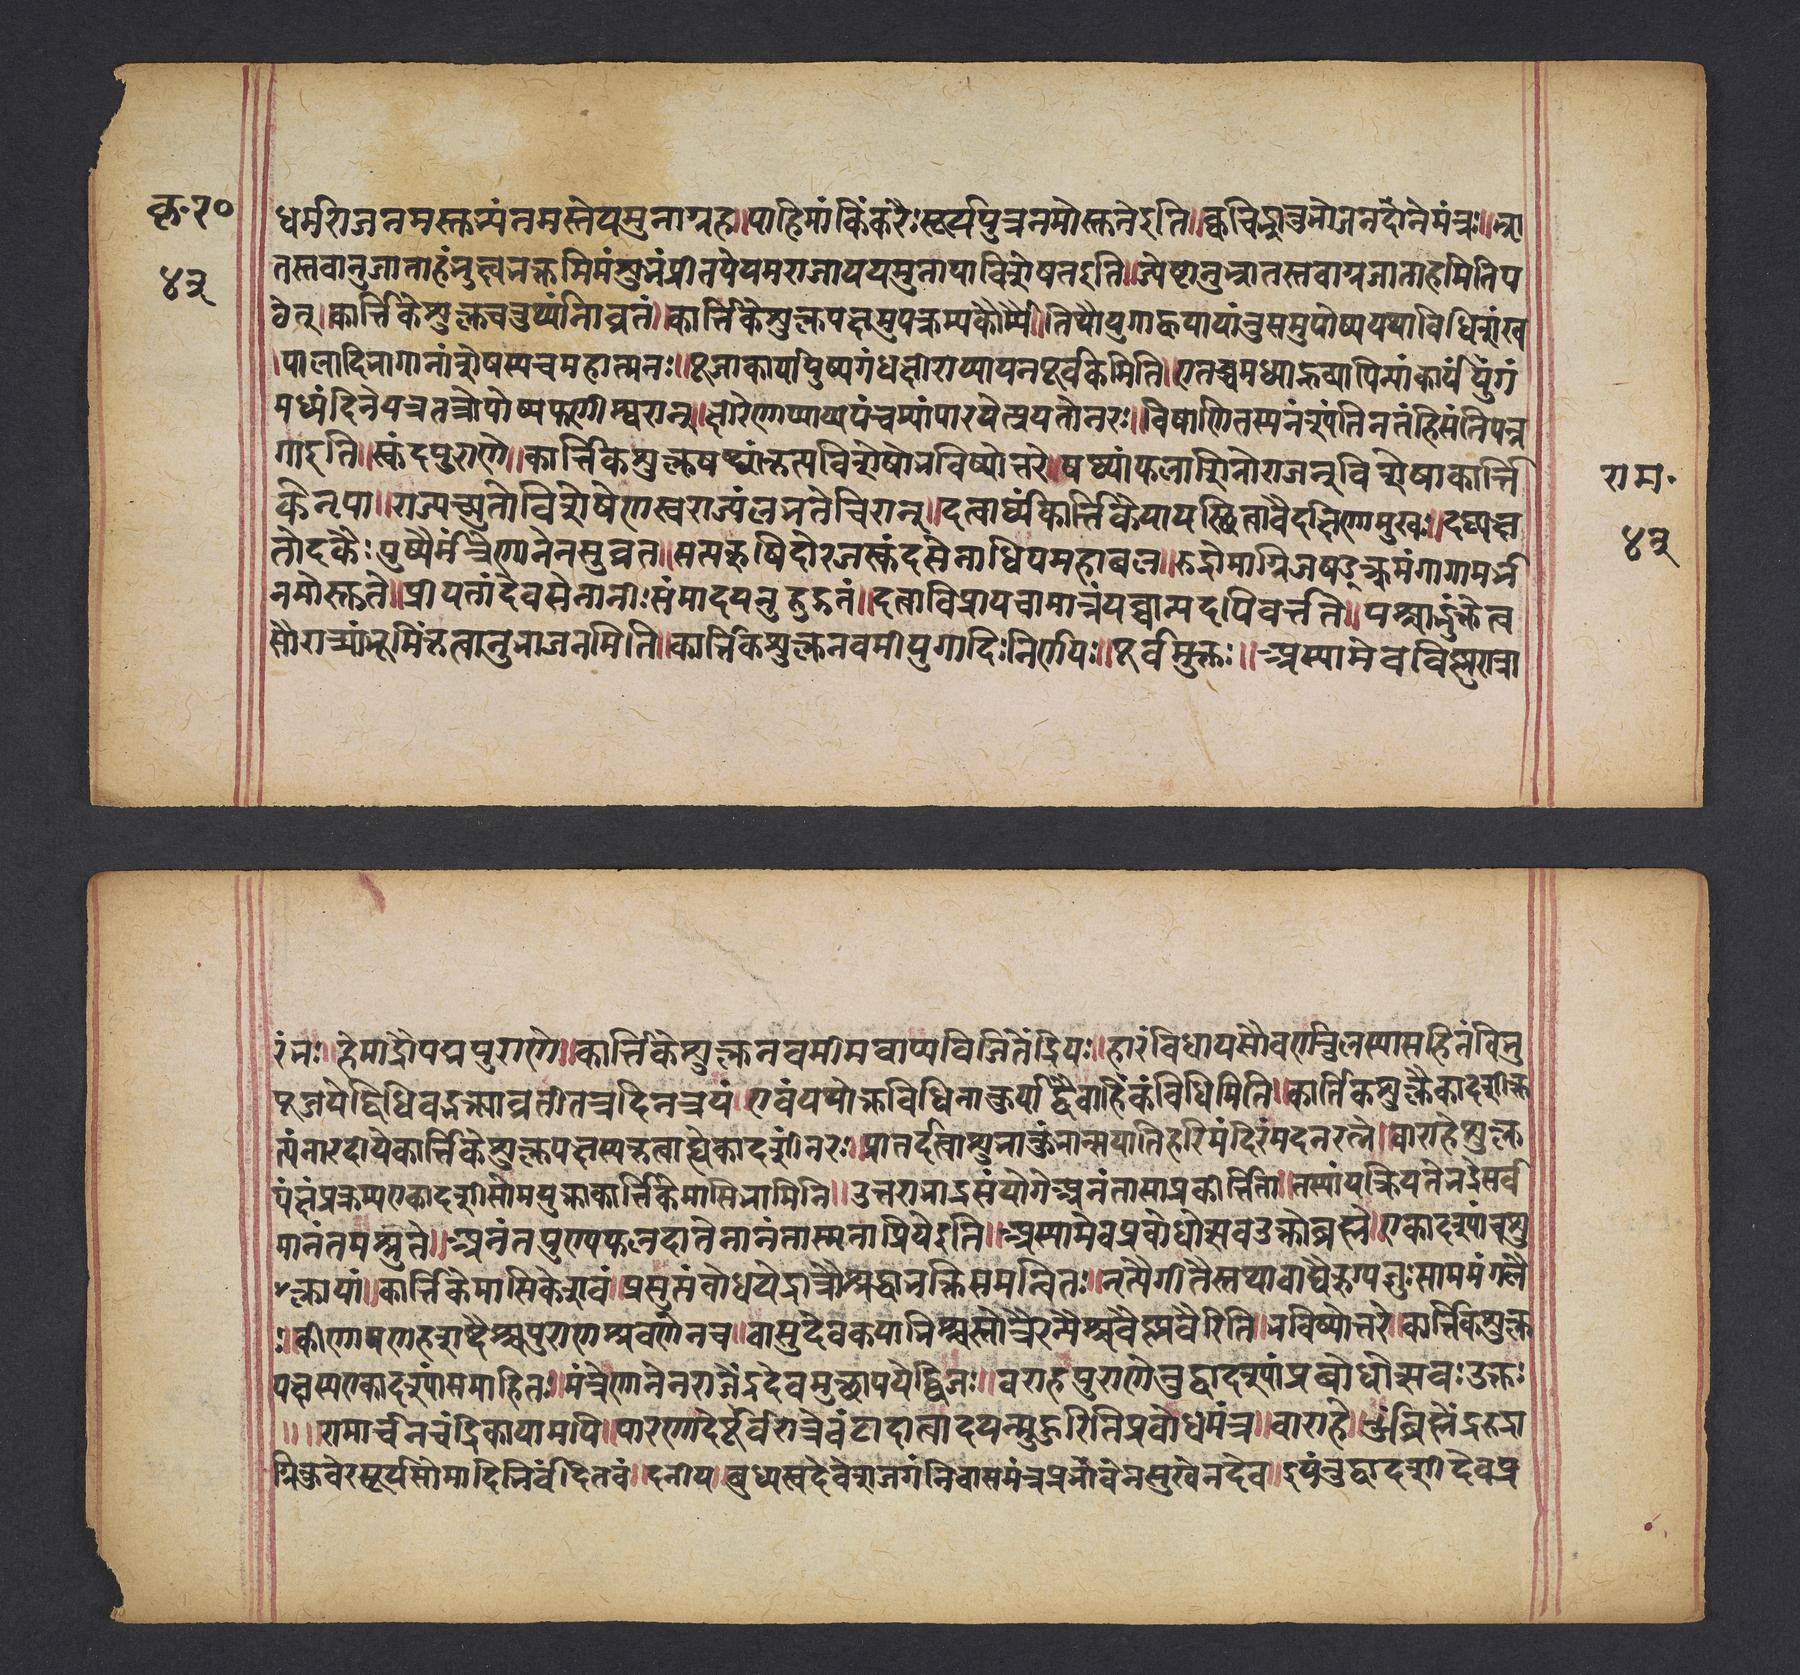 कृ॰ २०
४३
धर्मराजनमस्तुभ्यंनमस्तेयमुनाग्रज॥पाहिमांकिंकरैःसार्द्धंसूर्यपुत्रनमोस्तुतेइति॥क्वचिद्भ्रातुर्भोजनदानेमंत्रः॥भ्रा
तस्तवानुजाताहंभुंक्ष्वभक्तमिमंशुभंप्रीतयेयमराजाययमुनायाविशेषतइति॥ज्येष्ठातुभ्रातस्तवाग्रजाताहमितिप
ठेत्॥कार्त्तिकेशुक्लचतुर्थ्यांनागव्रतं॥कार्त्तिकेशुक्लपक्षमुपक्रम्यकौर्म्मे॥तिथौयुगाह्वयायांतुसमुपोष्ययथाविधिशंख
पालादिनागानांशेषस्यचमहात्मनः॥पूजाकार्यापुष्पगंधक्षीराप्यायनपूर्वकमिति॥एतच्चमध्याह्नव्यापिन्यांकार्यंयुगं
मध्यंदिनेयत्रतत्रोपोष्यफणीश्वरान्॥क्षीरेणाप्याय्यपंचम्यांपारयेत्प्रयतोनरः॥विषाणितस्यनश्यंतिनतंहिंसंतिपन्न
गाइति॥स्कंदपुराणे॥कार्त्तिकशुक्लषष्ठ्यांकृत्यविशेषोभविष्योत्तरे॥षष्ठ्यांफलाशिनोराजन्विशेषाकार्त्ति
केनृपा॥राज्यच्युतोविशेषेणस्वराज्यंलभतेचिरात्॥दत्वार्घ्यंकार्त्तिकेयायस्थित्वावैदक्षिणामुखः॥दध्नाक्ष
तोदकैःपुष्पैर्मंत्रेणानेनसुव्रत॥सप्तऋषिदारजस्कंदसेनाधिपमहाबल॥रुद्रोमाग्निजषड्वक्त्रमंगागामर्भ
नमोस्तुते॥प्रीयतांदेवसेनानीःसंमादयतुहृद्गतं॥दत्वाविप्रायचामान्नंयच्चान्यदपिवर्त्तते॥पश्चाद्भुंक्तेत्व
सौरात्र्यांभूमिंकृत्वातुभाजनमिति॥कार्त्तिकशुक्लनवमीयुगादिःनिर्णयः॥पूर्वमुक्तः॥अस्यामेवविष्णुरात्रा
राम॰
४३
रंभः॥हेमाद्रौपद्मपुराणे॥कार्त्तिकेशुक्लनवमीमवाप्यविजितेंद्रियः॥हारंविधायसौवर्णंतुलस्यासहितंविभु
पूजयेद्विधिवद्भक्त्याव्रतीतत्रदिनत्रयं॥एवंयथोक्तविधिनाकुर्याद्वैवाहिकंविधिमिति॥कार्तिकशुक्लैकादशीकृ
त्यंनारदीयेकार्त्तिकेशुक्लपक्षस्यकृत्वाह्येकादशींनरः॥प्रातर्दत्वाशुभान्कुंभान्प्रयातिहरिमंदिरंमदनरत्ने॥वाराहेशुक्ल
पक्षंप्रक्रम्यएकादशीसोमयुक्ताकार्त्तिकेमासिभामिनि॥उत्तराभाद्रसंयोगेअनंतासाप्रकीर्त्तिता॥तस्यांयत्क्रियतेभद्रेसर्व
मानंतमश्नुते॥अनंतपुण्यफलदातेनानंतास्मृताप्रियेइति॥अस्यामेवप्रबोधोत्सवउक्तोब्राह्मे॥एकादश्यांतुशु
क्लायां॥कार्त्तिकेमासिकेशवं॥प्रसुप्तंबोधयेद्रात्रौश्रद्धाभक्तिसमन्वितः॥नृत्यैर्गीतैस्तथावाद्यैऋग्यजुःसाममंगलै
ःवीणापणहशब्दैश्चपुराणश्रवणेनच॥वासुदेवकथाभिश्चस्तोत्रैरन्यैश्चवैष्णवैरिति॥भविष्योत्तरे॥कार्त्तिकशुक्ल
पक्षस्यएकादश्यांसमाहितः॥मंत्रेणानेनराजेंद्रदेवमुत्थापयेद्द्विजः॥वराहपुराणेतुद्वादश्यांप्रबोधोत्सवःउक्तः
॥॥रामार्चनचंद्रिकायामपि॥पारणादेःपूर्वरात्रेघंटादीन्वादयन्मुहुरितिप्रबोधमंत्र॥वाराहे॥ॐब्रह्मेंद्ररुद्रा
ग्निकुबेरसूर्यसोमादिभिर्वंदितवं॥दनीय॥बुध्यस्वदेवेशजगंनिवासमंत्रप्रभावेनसुखेनदेव॥इयंतुद्वादशीदेवप्र